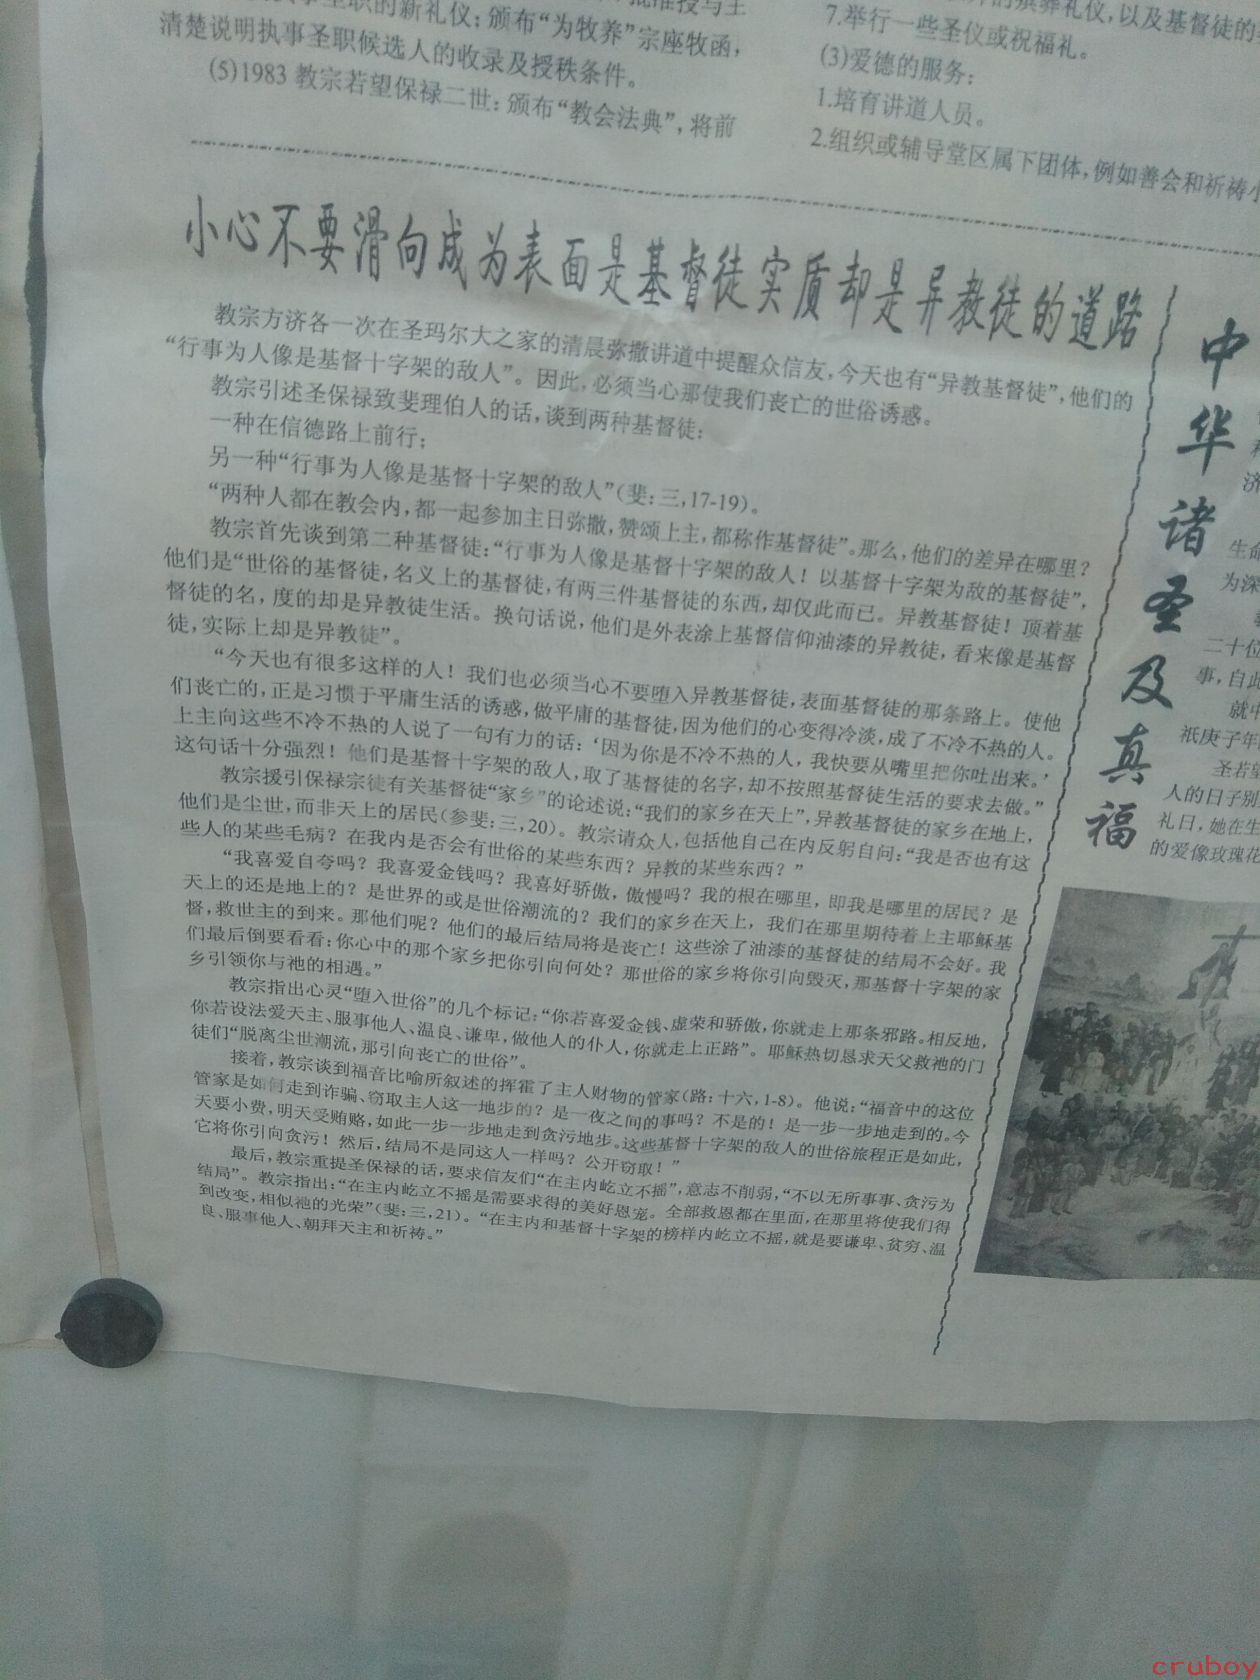 圣职的新礼仪；颁布“为牧养”宗座牧函，
清楚说明执事圣职候选人的收录及授秩条件。
(5)1983 教宗若望保禄二世：颁布“教会法典”，将前
殡葬礼仪，以及基督徒的
7.举行一些圣仪或祝福礼。
(3)爱德的服务：
1.培育讲道人员。
2.组织或辅导堂区属下团体，例如善会和祈祷小
小心不要滑向成为表面是基督徒实质却是异教徒的道路
教宗方济各一次在圣玛尔大之家的清晨弥撒讲道中提醒众信友，今天也有“异教基督徒”，他们的
“行事为人像是基督十字架的敌人”。因此，必须当心那使我们丧亡的世俗诱惑。
教宗引述圣保禄致斐理伯人的话，谈到两种基督徒：
一种在信德路上前行；
另一种“行事为人像是基督十字架的敌人”（斐：三，17-19）。
“两种人都在教会内，都一起参加主日弥撒，赞颂上主，都称作基督徒”。那么，他们的差异在哪里？
教宗首先谈到第二种基督徒：“行事为人像是基督十字架的敌人！以基督十字架为敌的基督徒”，
他们是“世俗的基督徒，名义上的基督徒，有两三件基督徒的东西，却仅此而已。异教基督徒！顶着基
督徒的名，度的却是异教徒生活。换句话说，他们是外表涂上基督信仰油漆的异教徒，看来像是基督
徒，实际上却是异教徒”。
“今天也有很多这样的人！我们也必须当心不要堕入异教基督徒，表面基督徒的那条路上。使他
们丧亡的，正是习惯于平庸生活的诱惑，做平庸的基督徒，因为他们的心变得冷淡，成了不冷不热的人。
上主向这些不冷不热的人说了一句有力的话：‘因为你是不冷不热的人，我快要从嘴里把你吐出来。’
这句话十分强烈！他们是基督十字架的敌人，取了基督徒的名字，却不按照基督徒生活的要求去做。”
教宗援引保禄宗徒有关基督徒“家乡”的论述说：“我们的家乡在天上”，异教基督徒的家乡在地上，
他们是尘世，而非天上的居民（参斐：三，20）。教宗请众人，包括他自己在内反躬自问：“我是否也有这
些人的某些毛病？在我内是否会有世俗的某些东西？异教的某些东西？”
“我喜爱自夸吗？我喜爱金钱吗？我喜好骄傲，傲慢吗？我的根在哪里，即我是哪里的居民？是
天上的还是地上的？是世界的或是世俗潮流的？我们的家乡在天上，我们在那里期待着上主耶稣基
督，救世主的到来。那他们呢？他们的最后结局将是丧亡！这些涂了油漆的基督徒的结局不会好。我
们最后倒要看看：你心中的那个家乡把你引向何处？那世俗的家乡将你引向毁灭，那基督十字架的家
乡引领你与祂的相遇。”
教宗指出心灵“堕入世俗”的几个标记：“你若喜爱金钱、虚荣和骄傲，你就走上那条邪路。相反地，
你若设法爱天主、服事他人、温良、谦卑，做他人的仆人，你就走上正路”。耶稣热切恳求天父救祂的门
徒们“脱离尘世潮流，那引向丧亡的世俗”。
接着，教宗谈到福音比喻所叙述的挥霍了主人财物的管家（路：十六，1-8）。他说：“福音中的这位
管家是如何走到诈骗、窃取主人这一地步的？是一夜之间的事吗？不是的！是一步一步地走到的。今
天要小费，明天受贿赂，如此一步一步地走到贪污地步。这些基督十字架的敌人的世俗旅程正是如此，
它将你引向贪污！然后，结局不是同这人一样吗？公开窃取！”
最后，教宗重提圣保禄的话，要求信友们“在主内屹立不摇”，意志不削弱，“不以无所事事、贪污为
结局”。教宗指出：“在主内屹立不摇是需要求得的美好恩宠。全部救恩都在里面，在那里将使我们得
到改变，相似祂的光荣”（斐：三，21）。“在主内和基督十字架的榜样内屹立不摇，就是要谦卑、贫穷、温
良、服事他人、朝拜天主和祈祷。”
中华诸圣及真福
济
生命
为深
二十位
事，自此
就中
祇庚子年
圣若望
人的日子别
礼日，她在生
的爱像玫瑰花
cruboy